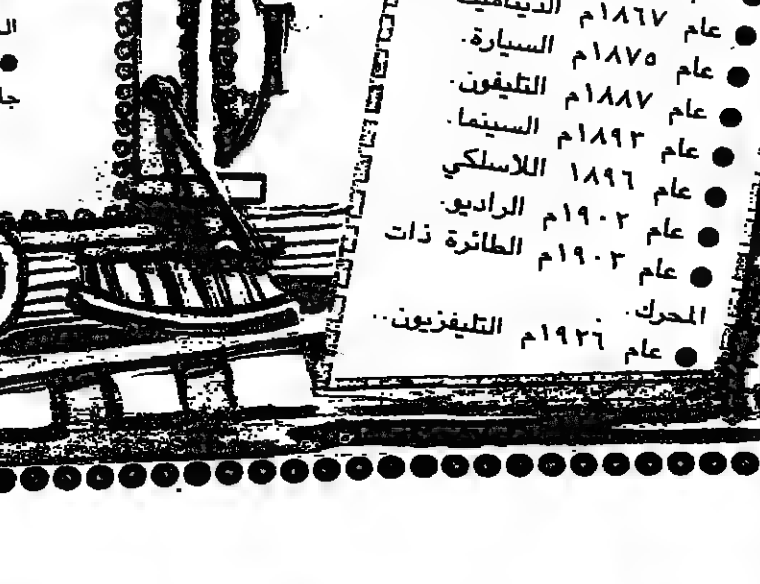 عام ١٨٦٧م
عام ١٨٧٥م السيارة.
عام ١٨٨٧م التليفون.
عام ١٨٩٣م السينما.
عام ١٨٩٦ اللاسلكي
عام ١٩٠٢م الراديو.
عام ١٩٠٣م الطائرة ذات
المحرك.
عام ١٩٢٦م التليفزيون..